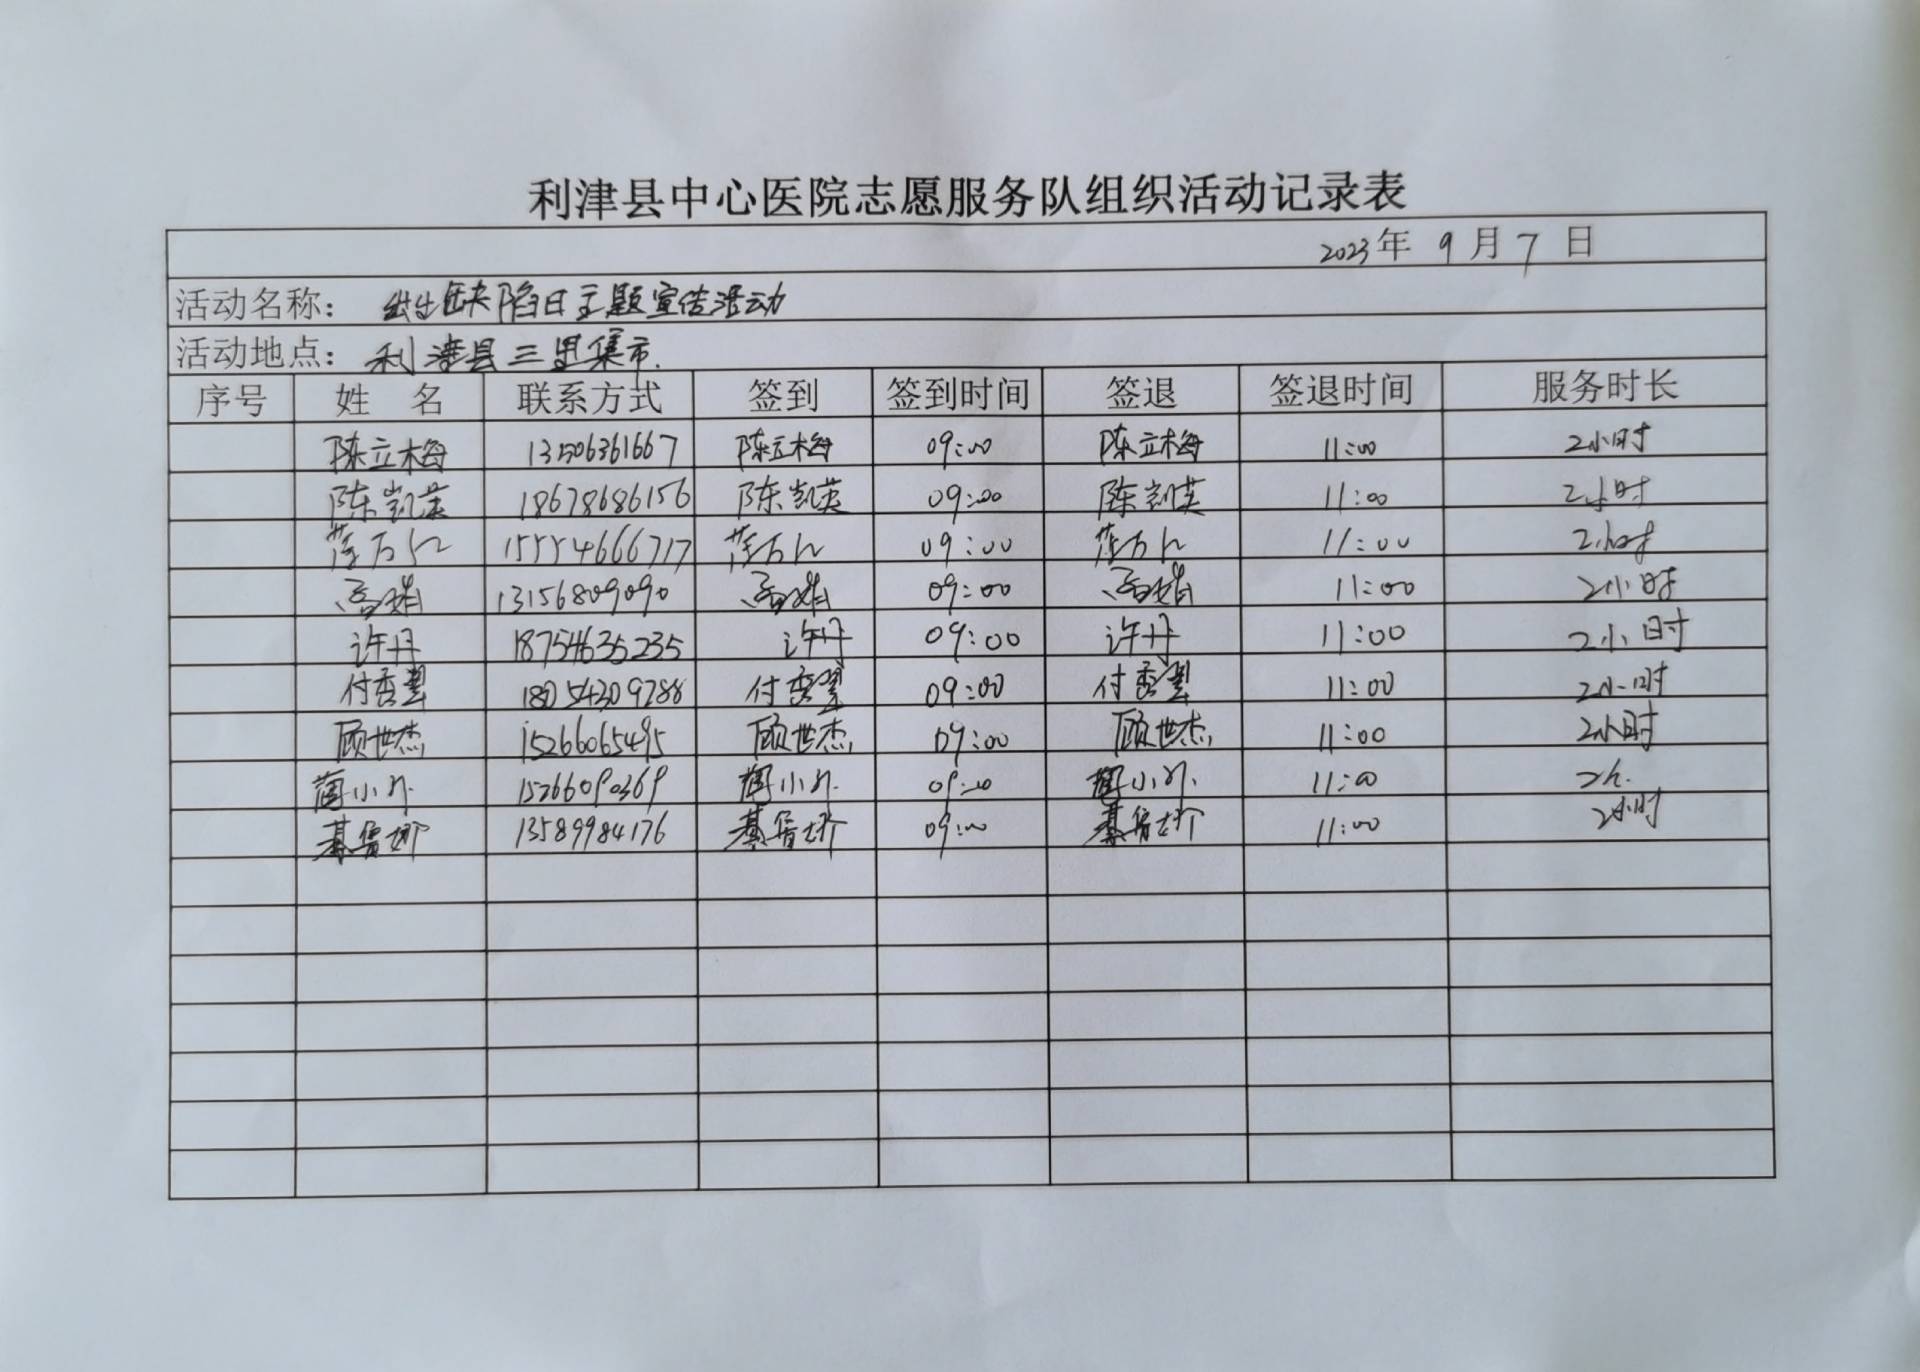 利津县中心医院志愿服务队组织活动记录表
2023年 9月7日
活动名称： 出生缺陷日主题宣传活动
活动地点： 利津县三里集市.
序号 姓 名 联系方式 签到 签到时间 签退 签退时间 服务时长
陈立梅 13506361667 陈立梅 09:00 陈立梅 11:00 2小时
陈凯英 18678686156 陈凯英 09:00 陈凯英 11:00 2小时
15554666717 09:00 11:00 2小时
高娟 13156809090 高娟 09:00 高娟 11:00 2小时
许丹 18754635235 许丹 09:00 许丹 11:00 2小时
付秀翠 18054309788 付秀翠 09:00 付秀翠 11:00 2小时
顾世杰 15266065495 顾世杰 09:00 顾世杰 11:00 2小时
15266090369 09:00 11:00 2h.
13589984176 09:00 11:00 2小时